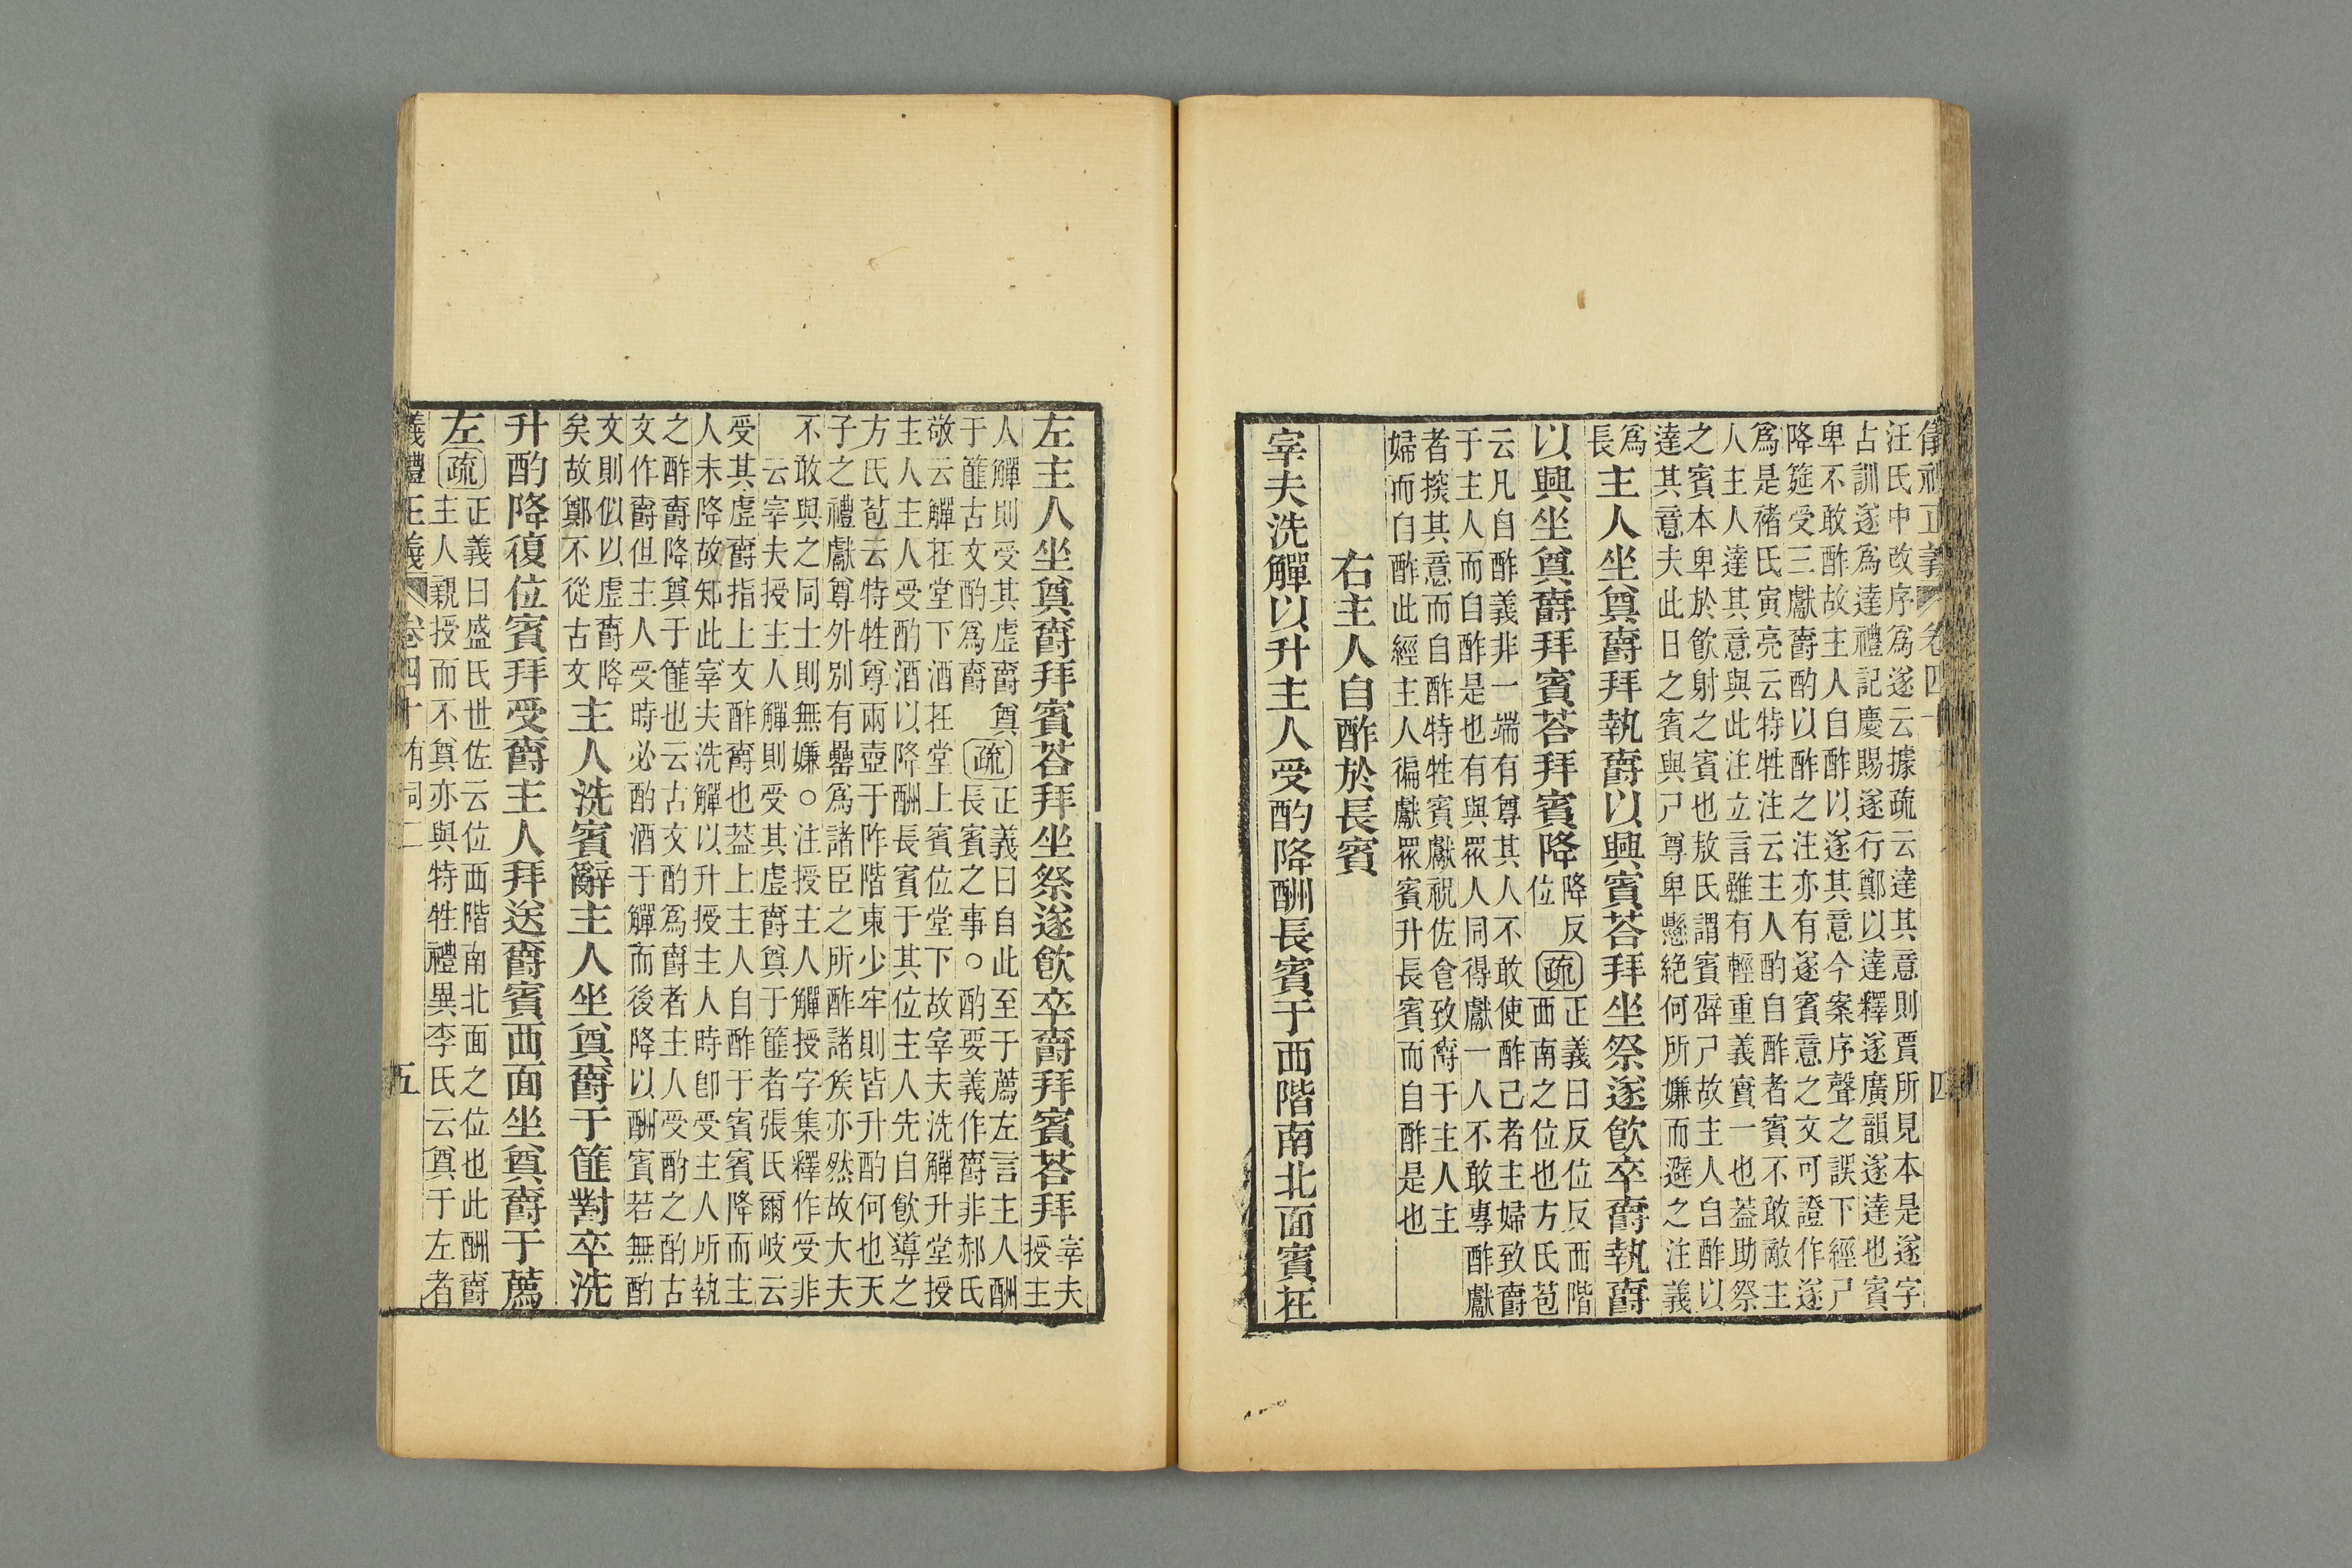 儀禮正義 卷四十 四
汪氏中改序爲遂云據疏云達其意則賈所見本是遂字
古訓遂爲達禮記慶賜遂行鄭以達釋遂廣韻遂達也賓
卑不敢酢故主人自酢以遂其意今案序聲之誤下經尸
降筵受三獻爵酌以酢之注亦有遂賓意之文可證作遂
爲是褚氏寅亮云特牲注云主人酌自酢者賓不敢敵主
人主人達其意與此注立言雖有輕重義實一也葢助祭
之賓本卑於飮射之賓也敖氏謂賓辟尸故主人自酢以
達其意夫此日之賓與尸尊卑懸絶何所嫌而避之注義
爲
長主人坐奠爵拜執爵以興賓荅拜坐祭遂飮卒爵執爵
以興坐奠爵拜賓荅拜賓降降反
位疏正義曰反位反西階
西南之位也方氏苞
云凡自酢義非一端有尊其人不敢使酢己者主婦致爵
于主人而自酢是也有與眾人同得獻一人不敢專酢獻
者揆其意而自酢特牲賓獻祝佐會致爵于主人主
婦而自酢此經主人徧獻眾賓升長賓而自酢是也
右主人自酢於長賓
宰夫洗觶以升主人受酌降酬長賓于西階南北面賓在
左主人坐奠爵拜賓荅拜坐祭遂飮卒爵拜賓荅拜宰夫
授主
人觶則受其虛爵奠
于篚古文酌爲爵疏正義曰自此至于薦左言主人酬
長賓之事○酌要義作爵非郝氏
敬云觶在堂下酒在堂上賓位堂下故宰夫洗觶升堂授
主人主人受酌酒以降酬長賓于其位主人先自飮導之
方氏苞云特牲尊兩壺于阼階東少牢則皆升酌何也天
子之禮獻尊外別有罍爲諸臣之所酢諸矦亦然故大夫
不敢與之同士則無嫌○注授主人觶授字集釋作受非
云宰夫授主人觶則受其虛爵奠于篚者張氏爾岐云
受其虛爵指上文酢爵也葢上主人自酢于賓賓降而主
人未降故知此宰夫洗觶以升授主人時卽受主人所執
之酢爵降奠于篚也云古文酌爲爵者主人受酌之酌古
文作爵但主人受時必酌酒于觶而後降以酬賓若無酌
文則似以虛爵降
矣故鄭不從古文主人洗賓辭主人坐奠爵于篚對卒洗
升酌降復位賓拜受爵主人拜送爵賓西面坐奠爵于薦
左疏正義曰盛氏世佐云位西階南北面之位也此酬爵
主人親授而不奠亦與特牲禮異李氏云奠于左者
儀禮正義 卷四十 有司二 五